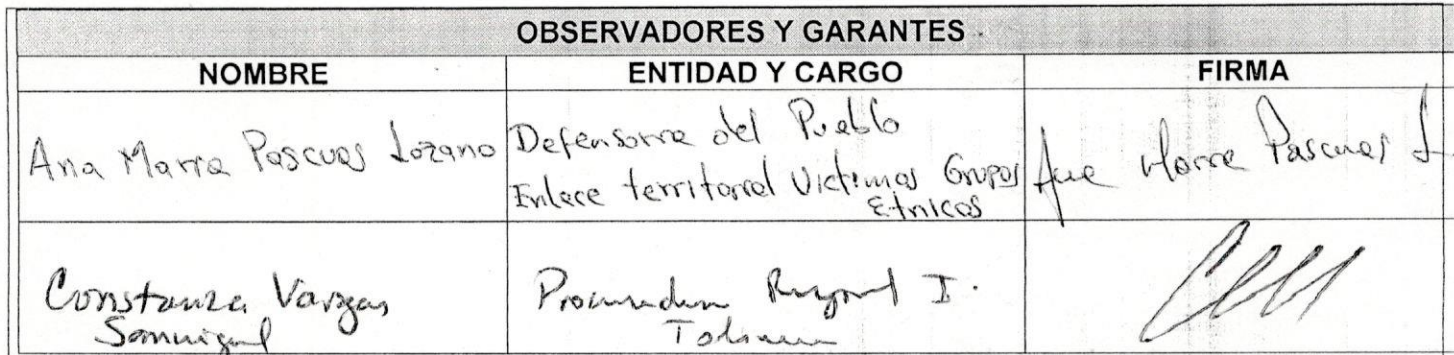 OBSERVADORES Y GARANTES
NOMBRE ENTIDAD Y CARGO FIRMA
Ana Maria Pascuas Lozano
Defensoria del Pueblo
Enlace territorial Victimas Grupos
Etnicos
Ana Maria Pascuas L
Constanza Vargas
Sanmiguel
Procuraduria Regional I.
Tolima